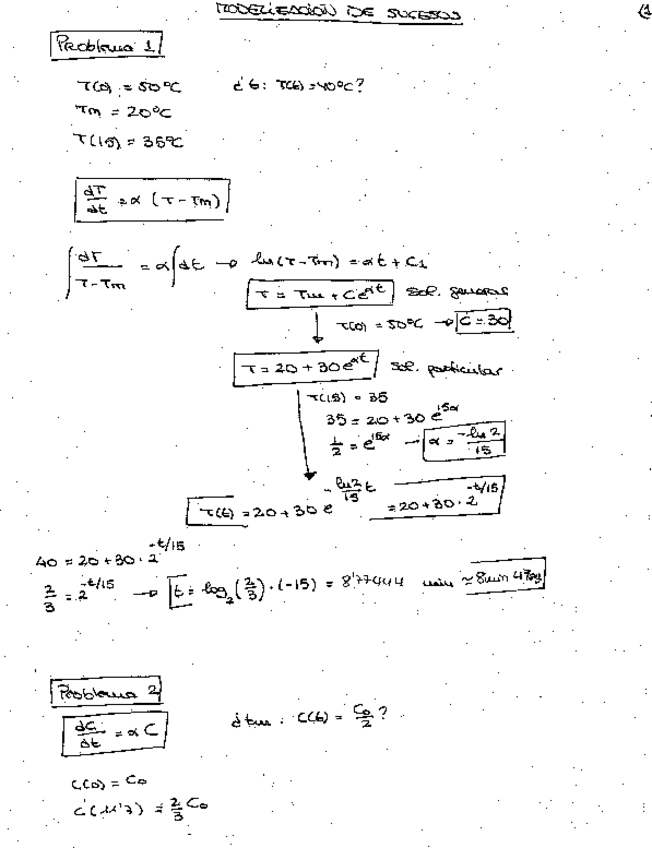 MODELIZACIÓN DE SUCESOS
(1
Problema 1
T(0) = 50ºC ¿t: T(t)=40ºC?
Tm = 20ºC
T(15) = 35ºC
dT/dt = α (T - Tm)
∫ dT/(T - Tm) = α ∫ dt → ln(T - Tm) = αt + C1
T = Tm + C e^{αt} sol. general
T(0) = 50ºC → C = 30
T = 20 + 30 e^{αt} sol. particular
T(15) = 35
35 = 20 + 30 e^{15α}
1/2 = e^{15α} → α = -ln 2/15
T(t) = 20 + 30 e^{-ln2/15 t} = 20 + 30 · 2^{-t/15}
40 = 20 + 30 · 2^{-t/15}
2/3 = 2^{-t/15} → t = log_2(2/3) · (-15) = 8'77444 min ≃ 8min 47seg
Problema 2
dC/dt = α C ¿tm : C(t) = C0/2 ?
C(0) = C0
C(11'3) = 2/3 C0